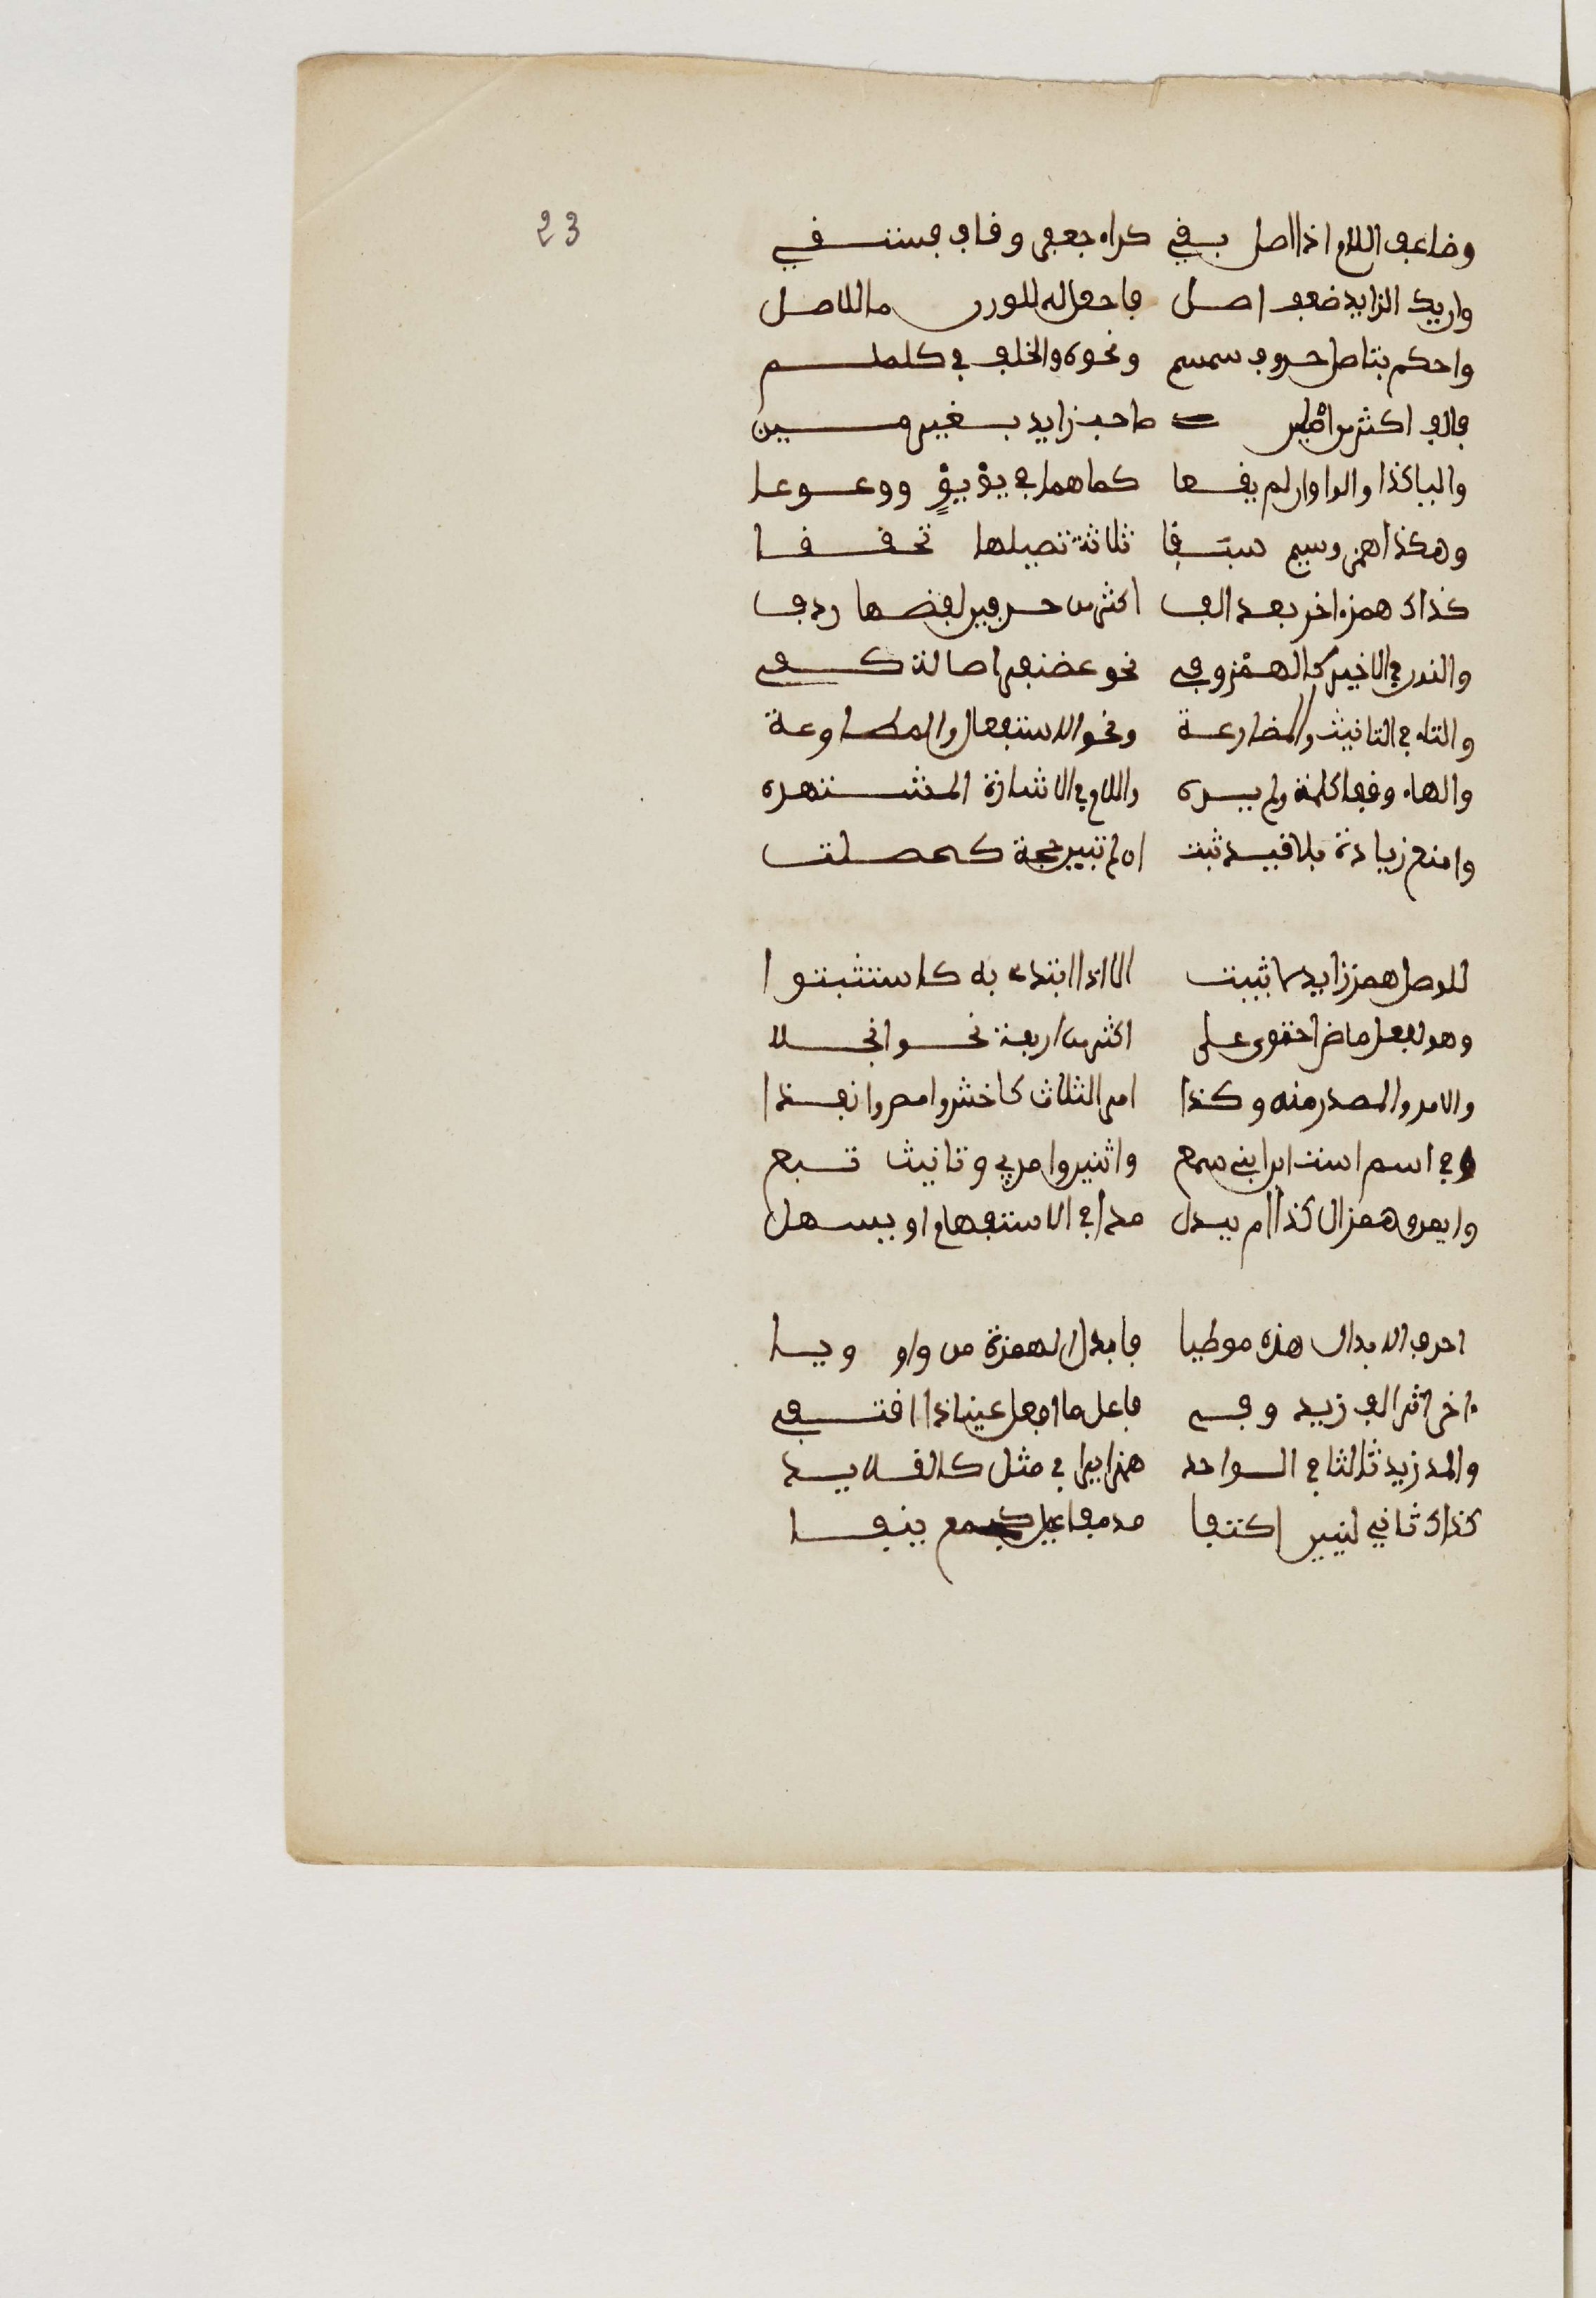 23
وضاعف اللام اذا اصل بقي كراء جعفر وقاف فستقي
وان يك الزايد ضعف اصل فاجعل له للوزن ما للاصل
واحكم بتاصل حروف سمسم ونحوه والخلف في كلملم
فالف اكثر من اصلين صاحب زايد بغير مين
واليا كذا والواو ان لم يقعا كما هما في يؤيؤ ووعوعا
وهكذا همز وميم سبقا ثلاثة تصيلها تحققا
كذاك همز اخر بعد الف اكثر من حرفين لفضها ردف
والنون في الاخير كالهمز وفي نحو غضنفر اصالة كفي
والتاء في التانيث والمضارعة ونحو الاستفعال والمطاوعة
والهاء وقفا كلمه ولم يره واللام في الاشارة المشتهره
وامنع زيادة بلا قيد ثبت ان لم تبين حجة كحصلت
للوصل همز زايد لا يثبت الا اذا ابتدء به كاستثبتوا
وهو لفعل ماض احتوى على اكثر من اربعة نحو انجلا
والامر والمصدر منه وكذا امر الثلاث كاخش وامض وانفذا
وفي اسم است ابن ابنم سمع واثنين وامرئ وتانيث تبع
وايمن وهمز ال كذا ام يبدل مدا في الاستفهام او يسهل
احرف الابدال هذه موطيا فابدل الهمزة من واو ويا
ءاخر اثر الف زيد وفي فاعل ما افعل عينا اذا اقتفي
والمد زيد ثالثا في الواحد همزا يرا في مثل كالقلايد
كذاك ثاني لينين اكتنفا مد مفاعل كجمع ينفا